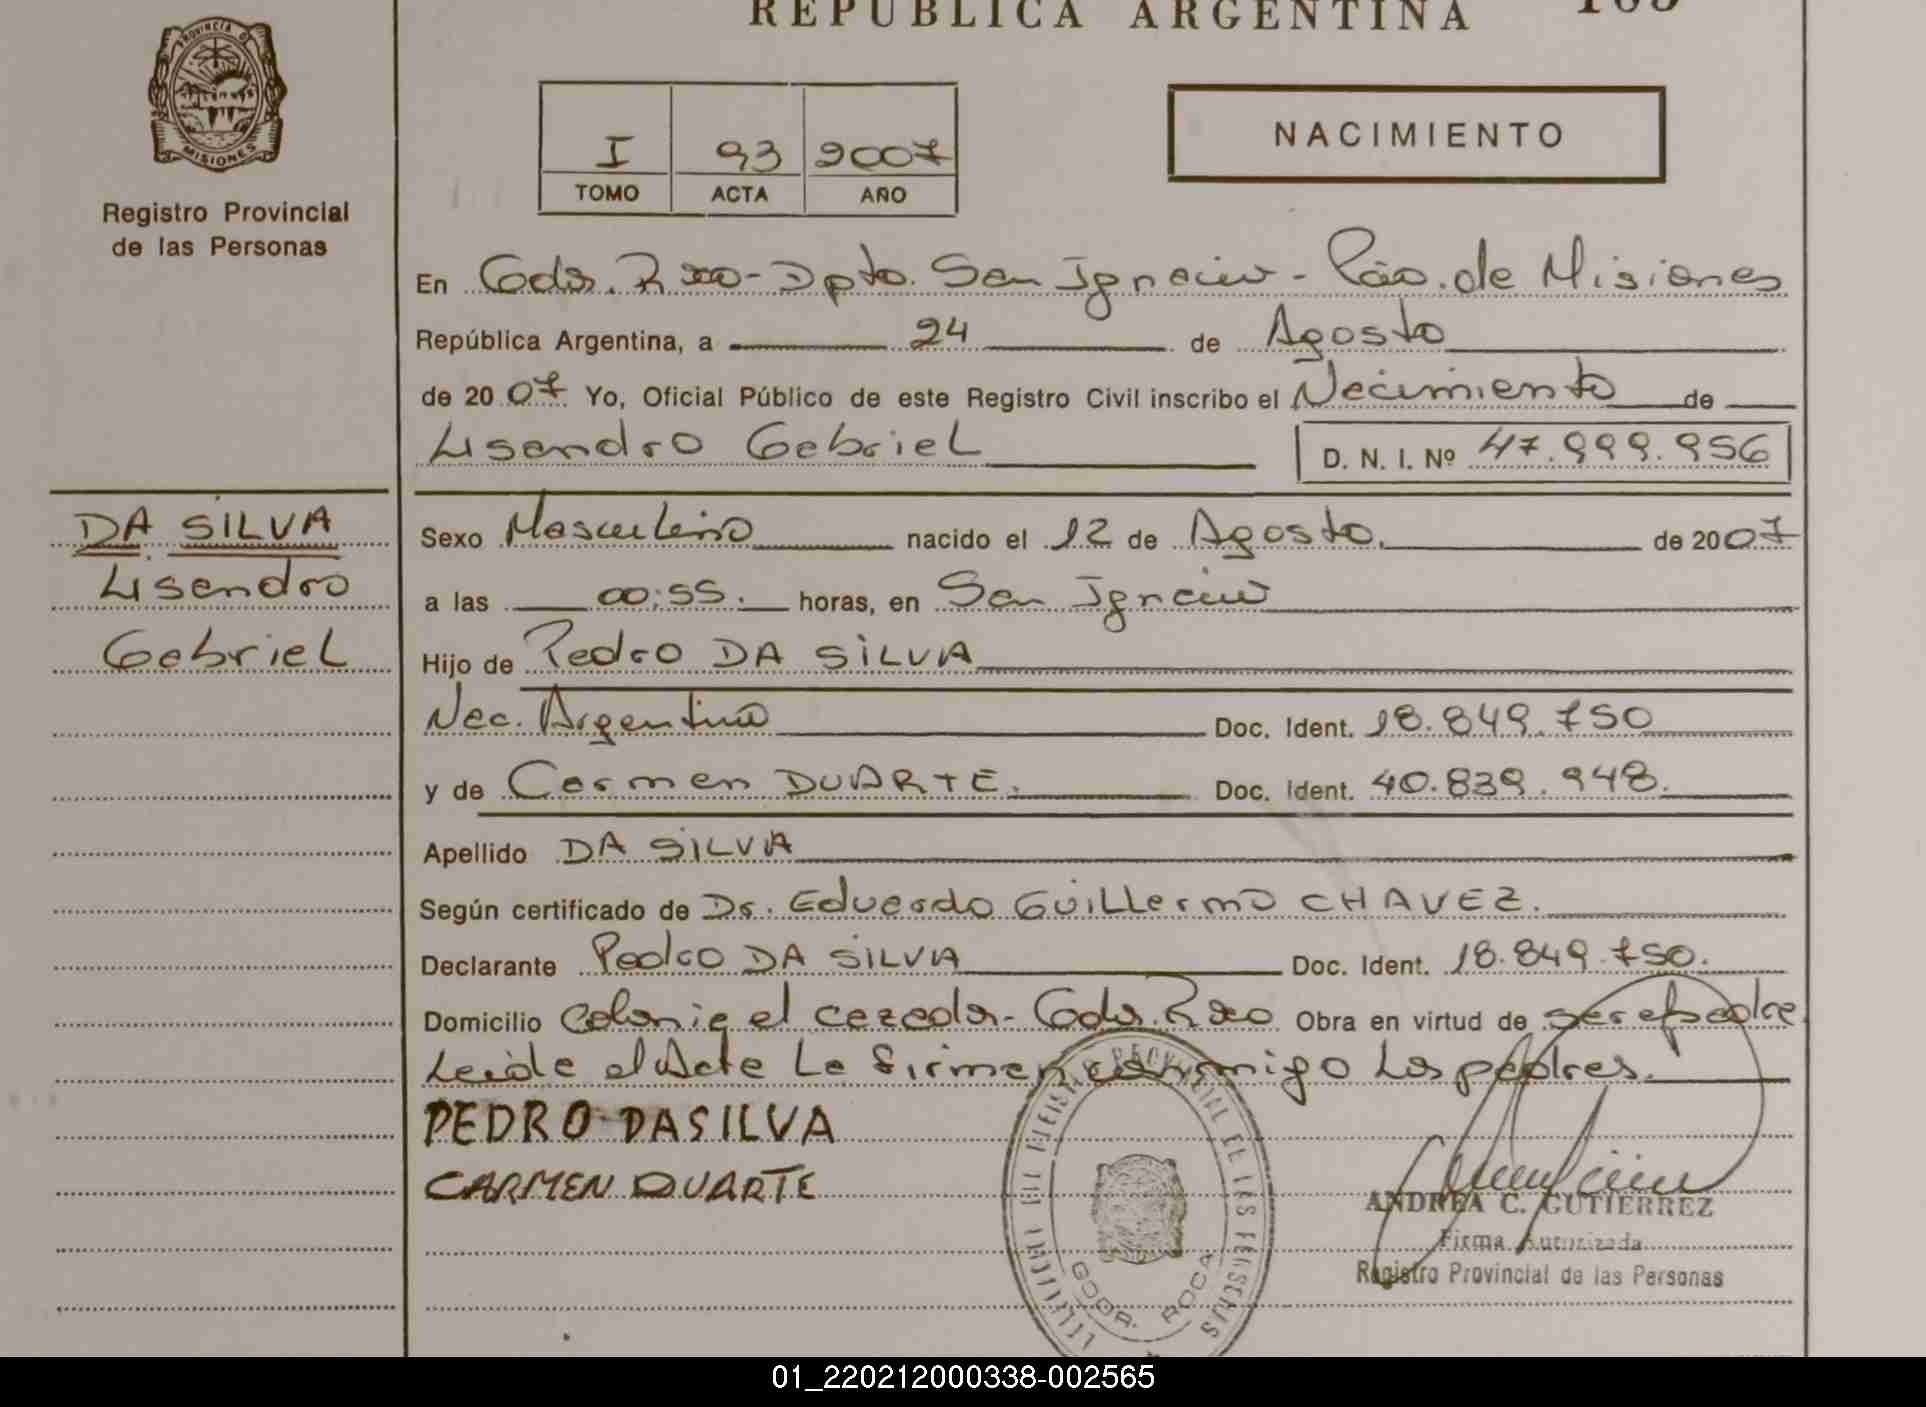 REPUBLICA ARGENTINA
PROVINCIA D MISIONES
Registro Provincial
de las Personas
I 93 2007
TOMO ACTA AÑO
NACIMIENTO
En Gdor. Roca - Dpto. San Ignacio - Pcia. de Misiones
República Argentina, a 24 de Agosto
de 2007 Yo, Oficial Público de este Registro Civil inscribo el Nacimiento de
Lisandro Gabriel D. N. I. Nº 47.999.956
DA SILVA
Lisandro
Gabriel
Sexo Masculino nacido el 12 de Agosto. de 2007
a las 00:55. horas, en San Ignacio
Hijo de Pedro DA SILVA
Nac. Argentina Doc. Ident. 18.849.750
y de Carmen DUARTE. Doc. Ident. 40.839.948.
Apellido DA SILVA
Según certificado de Dr. Eduardo Guillermo CHAVEZ.
Declarante Pedro DA SILVA Doc. Ident. 18.849.750.
Domicilio Colonia el cazador - Gdor. Roca Obra en virtud de ser el padre
Leída el Acta La firman conmigo Los padres.
PEDRO DASILVA
CARMEN DUARTE
REGISTRO PROVINCIAL DE LAS PERSONAS
GDOR. ROCA
ANDREA C. GUTIERREZ
Firma Autorizada
Registro Provincial de las Personas
01_220212000338-002565